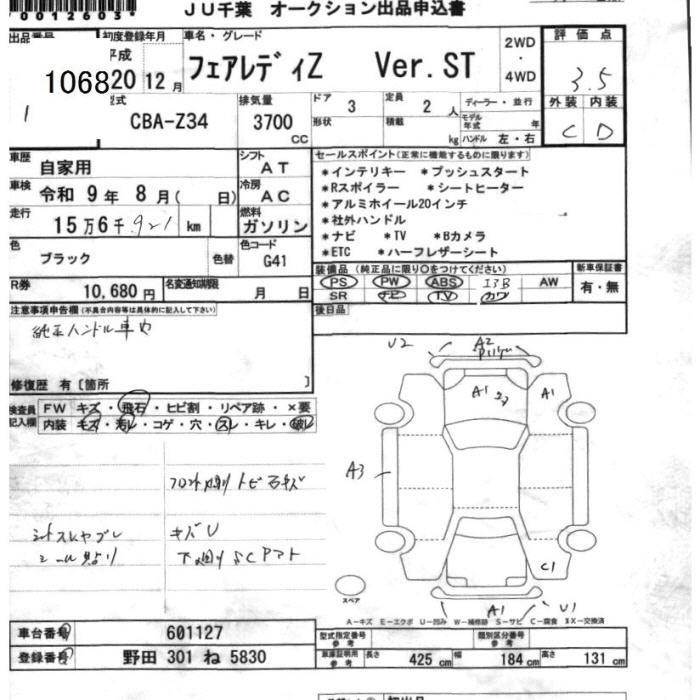 70012603
JU千葉 オークション出品申込書
出品番号
1068
1
初度登録年月
平成
20 12月
車名・グレード
フェアレディZ Ver. ST
2WD
・
4WD
評価点
3.5
外装 内装
C D
型式
CBA-Z34
排気量
3700
CC
ドア 3
定員 2 人
形状
積載 kg
ディーラー・並行
モデル年式 年
ハンドル 左・右
車歴
自家用
シフト
AT
車検
令和 9年 8月( 日)
冷房
AC
走行
15万6千921km
燃料
ガソリン
色
ブラック
色替
色コード
G41
R券
10,680円
名変通知期限
月 日
セールスポイント(正常に機能するものに限ります)
*インテリキー *プッシュスタート
*Rスポイラー *シートヒーター
*アルミホイール20インチ
*社外ハンドル
*ナビ *TV *Bカメラ
*ETC *ハーフレザーシート
装備品(純正品に限り○をつけてください)
PS PW ABS エアB AW
SR ナビ TV カワ
新車保証書
有・無
後日品
注意事項申告欄(不具合内容等は具体的に記入して下さい)
純正ハンドル車内
修復歴 有〔箇所 〕
検査員記入欄
FW キズ・飛石・ヒビ割・リペア跡・×要
内装 キズ・汚レ・コゲ・穴・スレ・キレ・破レ
キズU
U2
A2
A1
A1
A3
C1
A1
U1
スペア
A-キズ E-エクボ U-凹み W-補修跡 S-サビ C-腐食 XX-交換済
車台番号
601127
登録番号
野田 301 ね 5830
型式指定番号
参考
類別区分番号
参考
車庫証明用
参考
長さ 425 cm 幅 184 cm 高さ 131 cm